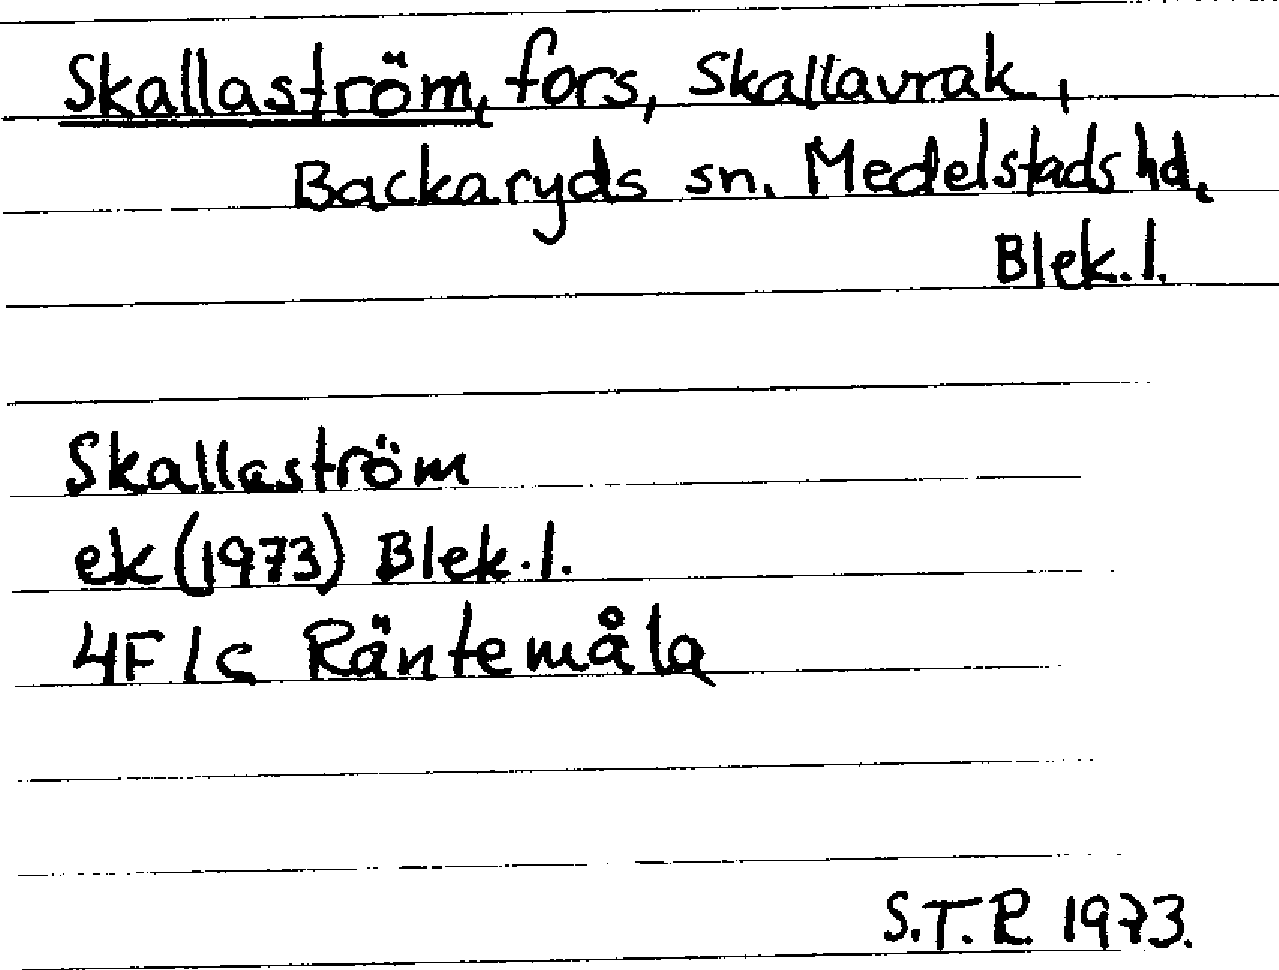 Skallaström, fors, Skallavrak,
Backaryds sn. Medelstads hd,
Blek.l.
Skallaström
ek (1973) Blek.l.
4F 1c Räntemåla
S.T.R. 1973.